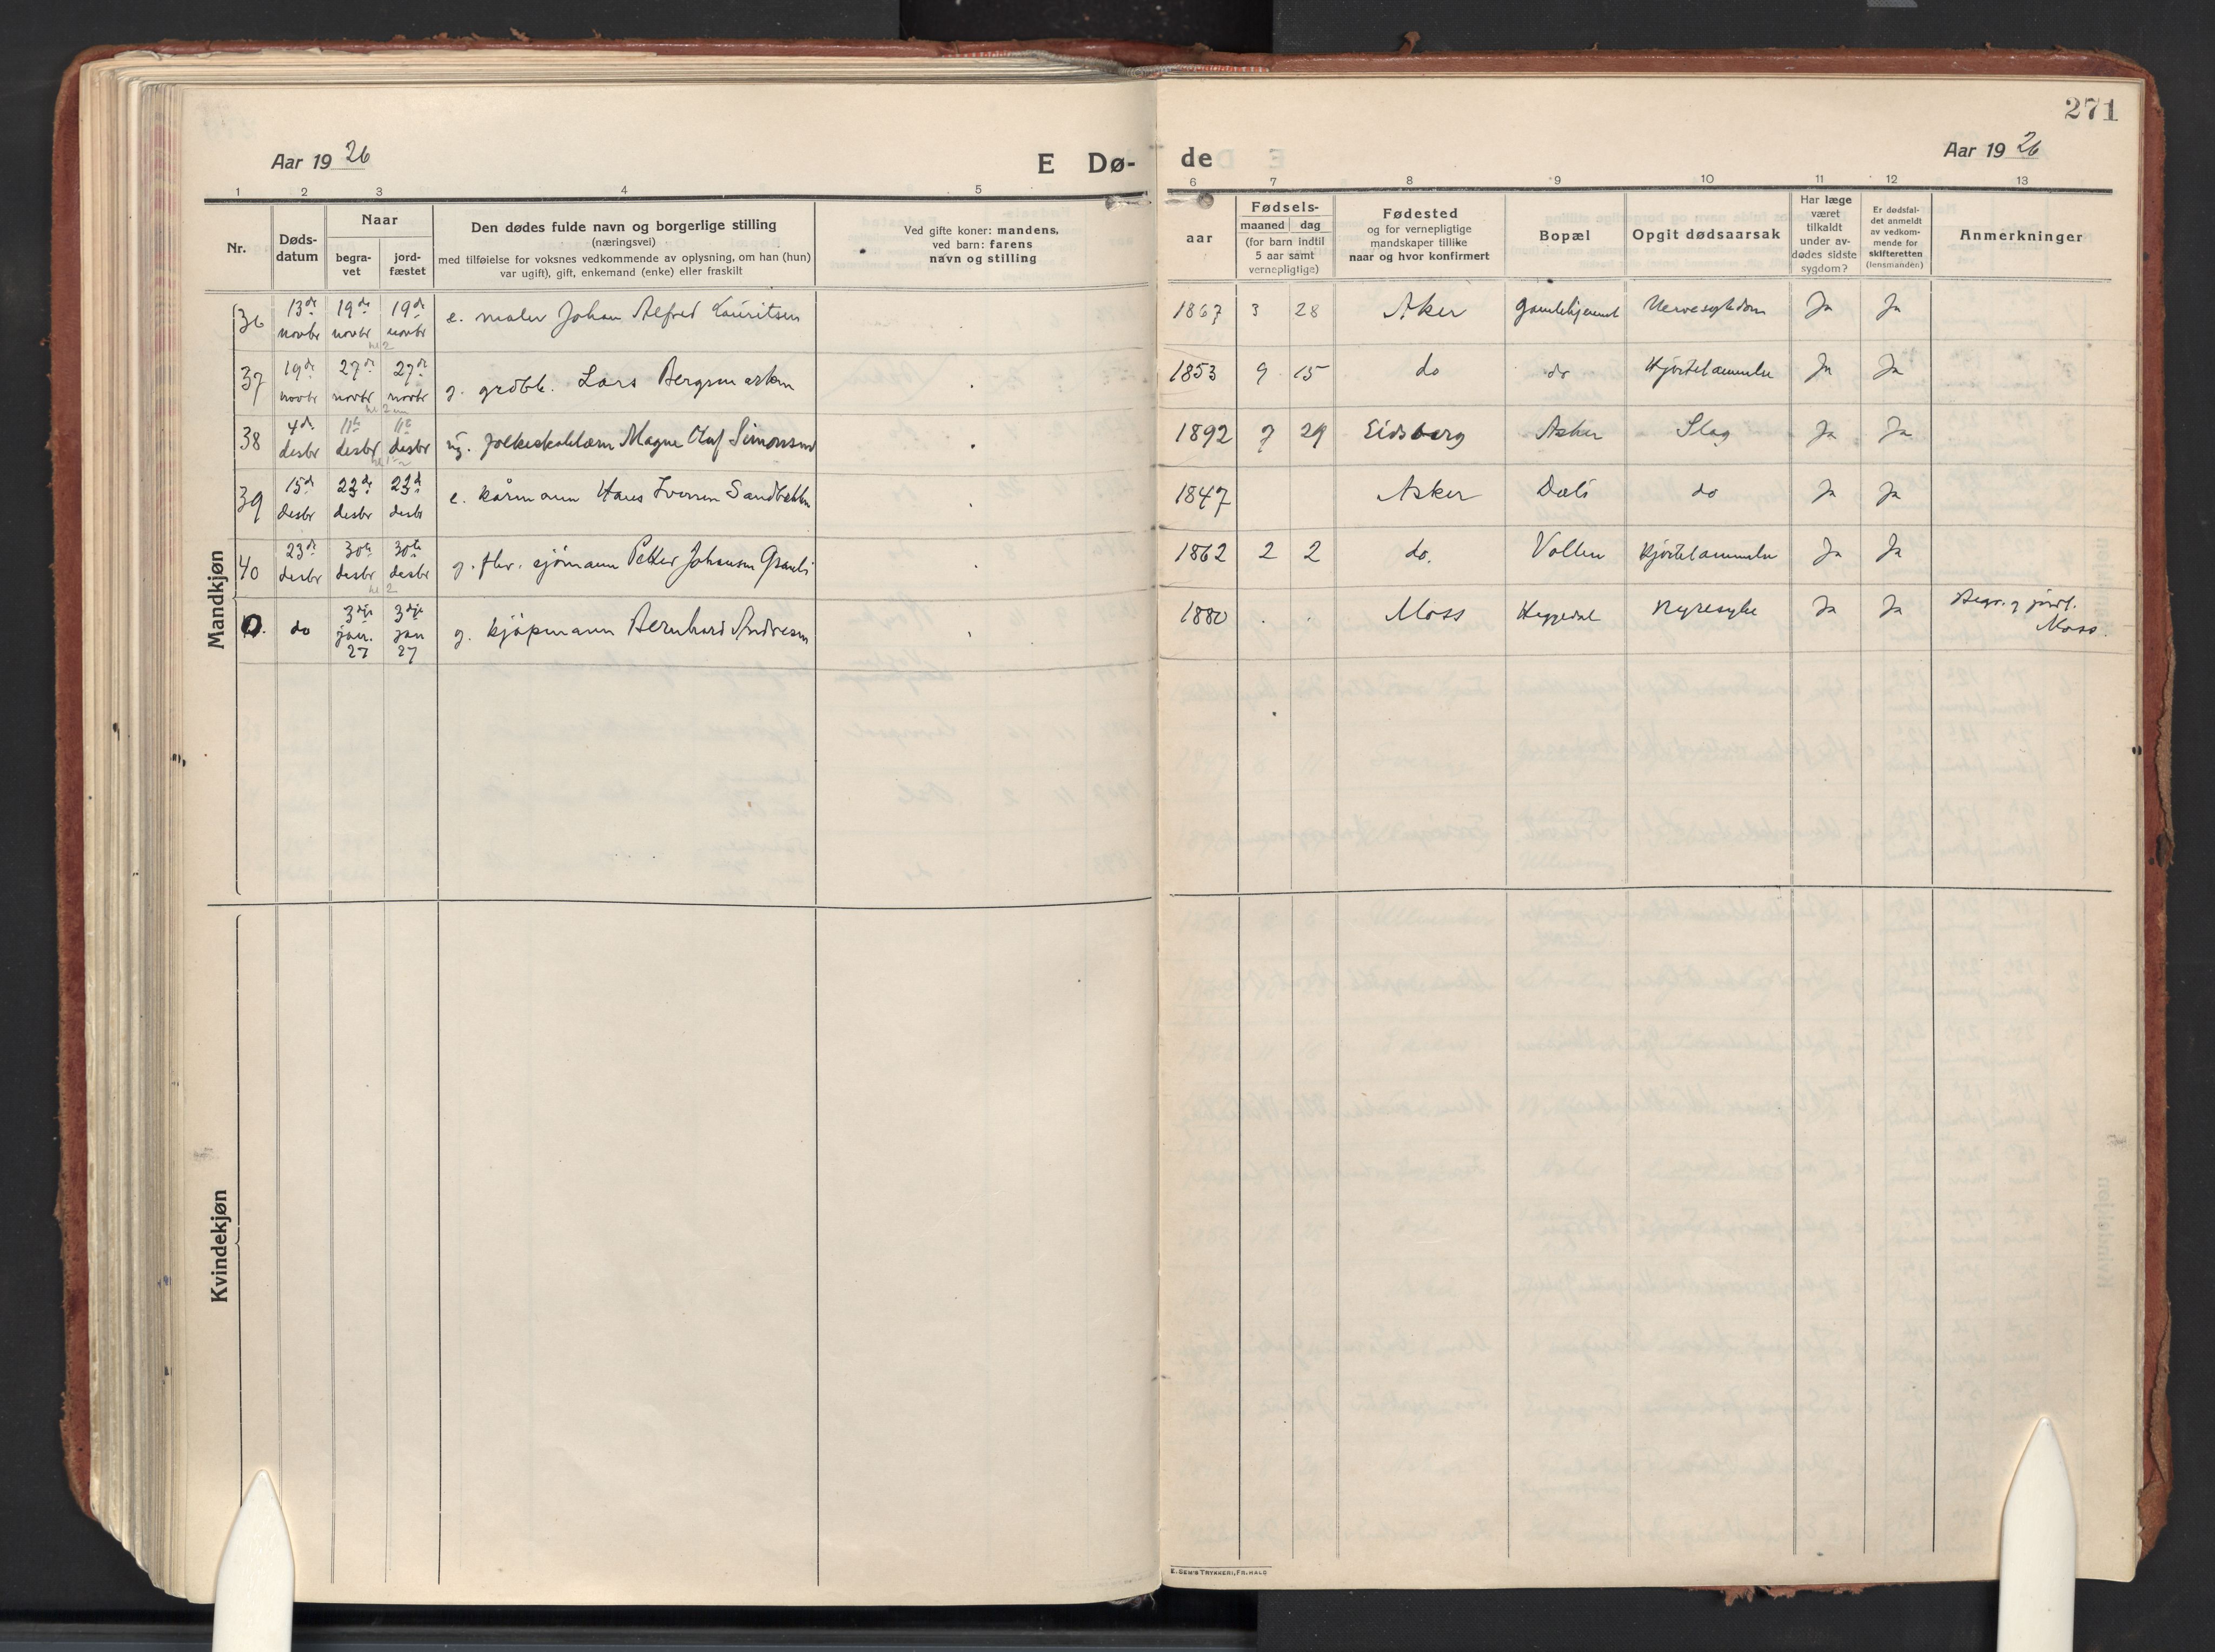 271
Aar 1926
E Dø-
de
Aar 1926
1 2 3 4 5 6 7 8 9 10 11 12 13
Nr.
Døds-
datum
Naar
begra-
vet
jord-
fæstet
Den dødes fulde navn og borgerlige stilling
(næringsvei)
med tilføielse for voksnes vedkommende av oplysning, om han (hun)
var ugift), gift, enkemand (enke) eller fraskilt
Ved gifte koner: mandens,
ved barn: farens
navn og stilling
aar
Fødsels-
maaned dag
(for barn indtil
5 aar samt
vernepligtige)
Fødested
og for vernepligtige
mandskaper tillike
naar og hvor konfirmert
Bopæl
Opgit dødsaarsak
Har læge
været
tilkaldt
under av-
dødes sidste
sygdom?
Er dødsfal-
det anmeldt
av vedkom-
mende for
skifteretten
(lensmanden)
Anmerkninger
Mandkjøn
36 13de novbr 19de novbr 19de novbr e. maler Johan Alfred Lauritsen 1867 3 28 Aker Gamlehjemmet Nervesykdom Ja Ja
37 19de novbr 27de novbr 27de novbr g. grdbr. Lars 1853 9 15 do do Hjertelammelse Ja Ja
38 4de desbr 11te desbr 11te desbr ug. folkeskolelærer Magne Olaf Simonsen 1892 7 29 Eidsberg Asker Slag Ja Ja
39 15de desbr 22de desbr 22de desbr e. kårmann Hans Iversen 1847 Asker Dæli do Ja Ja
40 23de desbr 30te desbr 30te desbr g. fhv. sjömann Petter Johansen 1862 2 2 do. Vollen Hjertelammelse Ja Ja
0. do 3dje jan. 27 3dje jan 27 g. kjöpmann Bernhard Andresen 1880 Moss Heggedal Nyresyke Ja Ja Begr. og jordf.
Moss.
Kvindekjøn
E. SEM'S TRYKKERI, FR.HALD